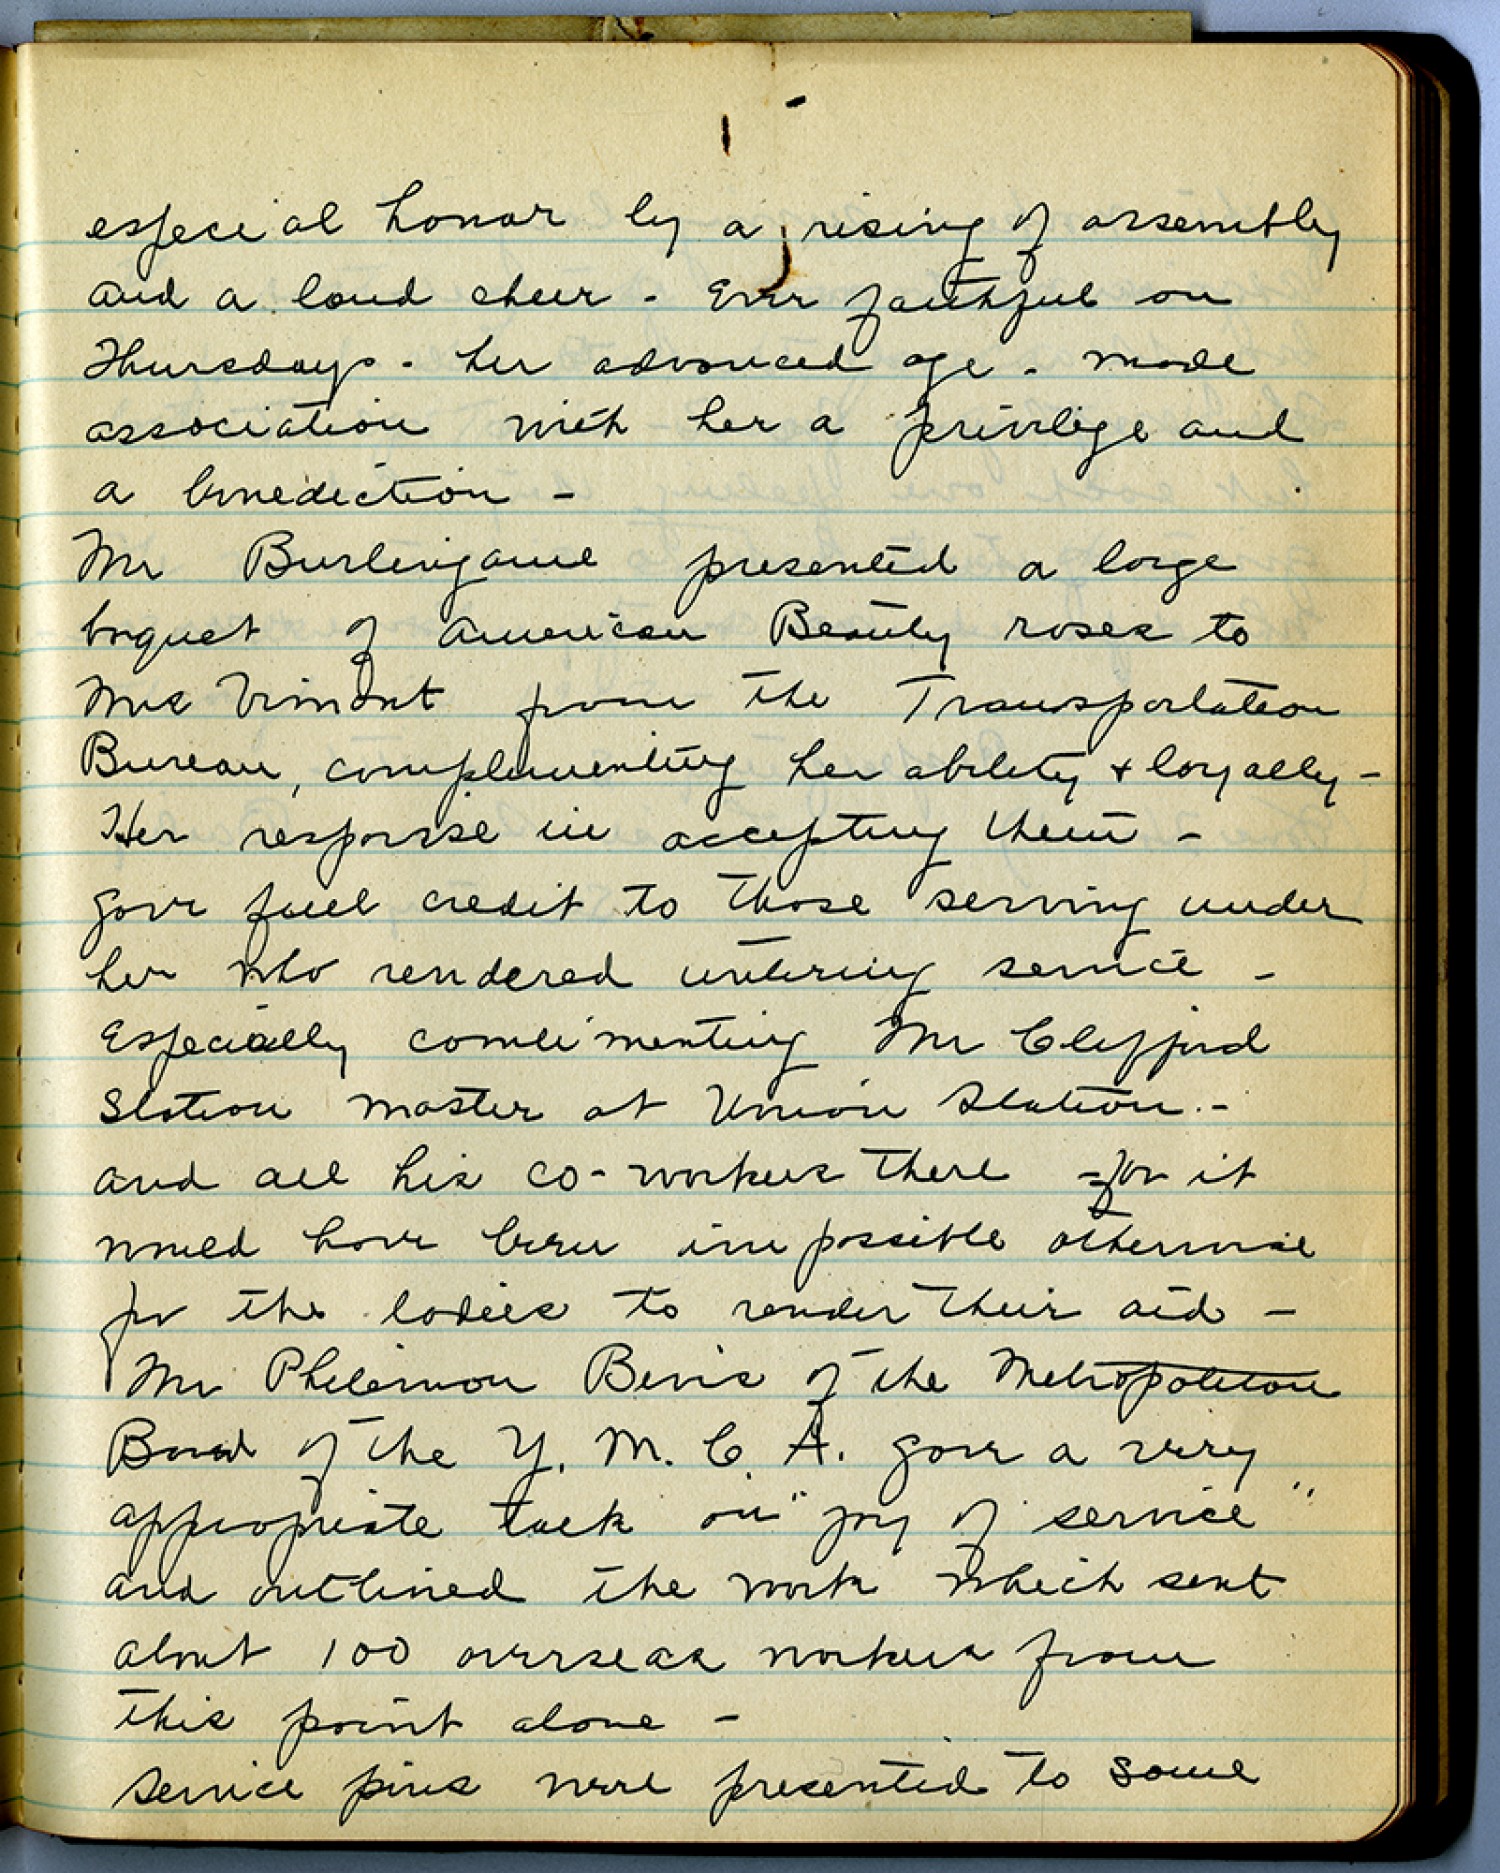 especial honor by a rising of assembly
and a loud cheer - Ever faithful on
Thursdays - her advanced age - made
association with her a privilege and
a benediction -
Mr Burlingame presented a large
boquet of American Beauty roses to
Mrs Vimont from the Transportation
Bureau, complimenting her ability + loyally -
Her response in accepting them -
gave full credit to those serving under
her who rendered untiring service -
Especially comlimenting Mr Clifford
Station master at Union Station. -
and all his co-workers there - for it
would have been impossible otherwise
for the ladies to render their aid -
Mr Philemon Bevis of the Metropolitan
Board of the Y. M. C. A. gave a very
appropriate talk on "joy of service"
and outlined the work which sent
about 100 overseas workers from
this point alone -
Service pins were presented to some